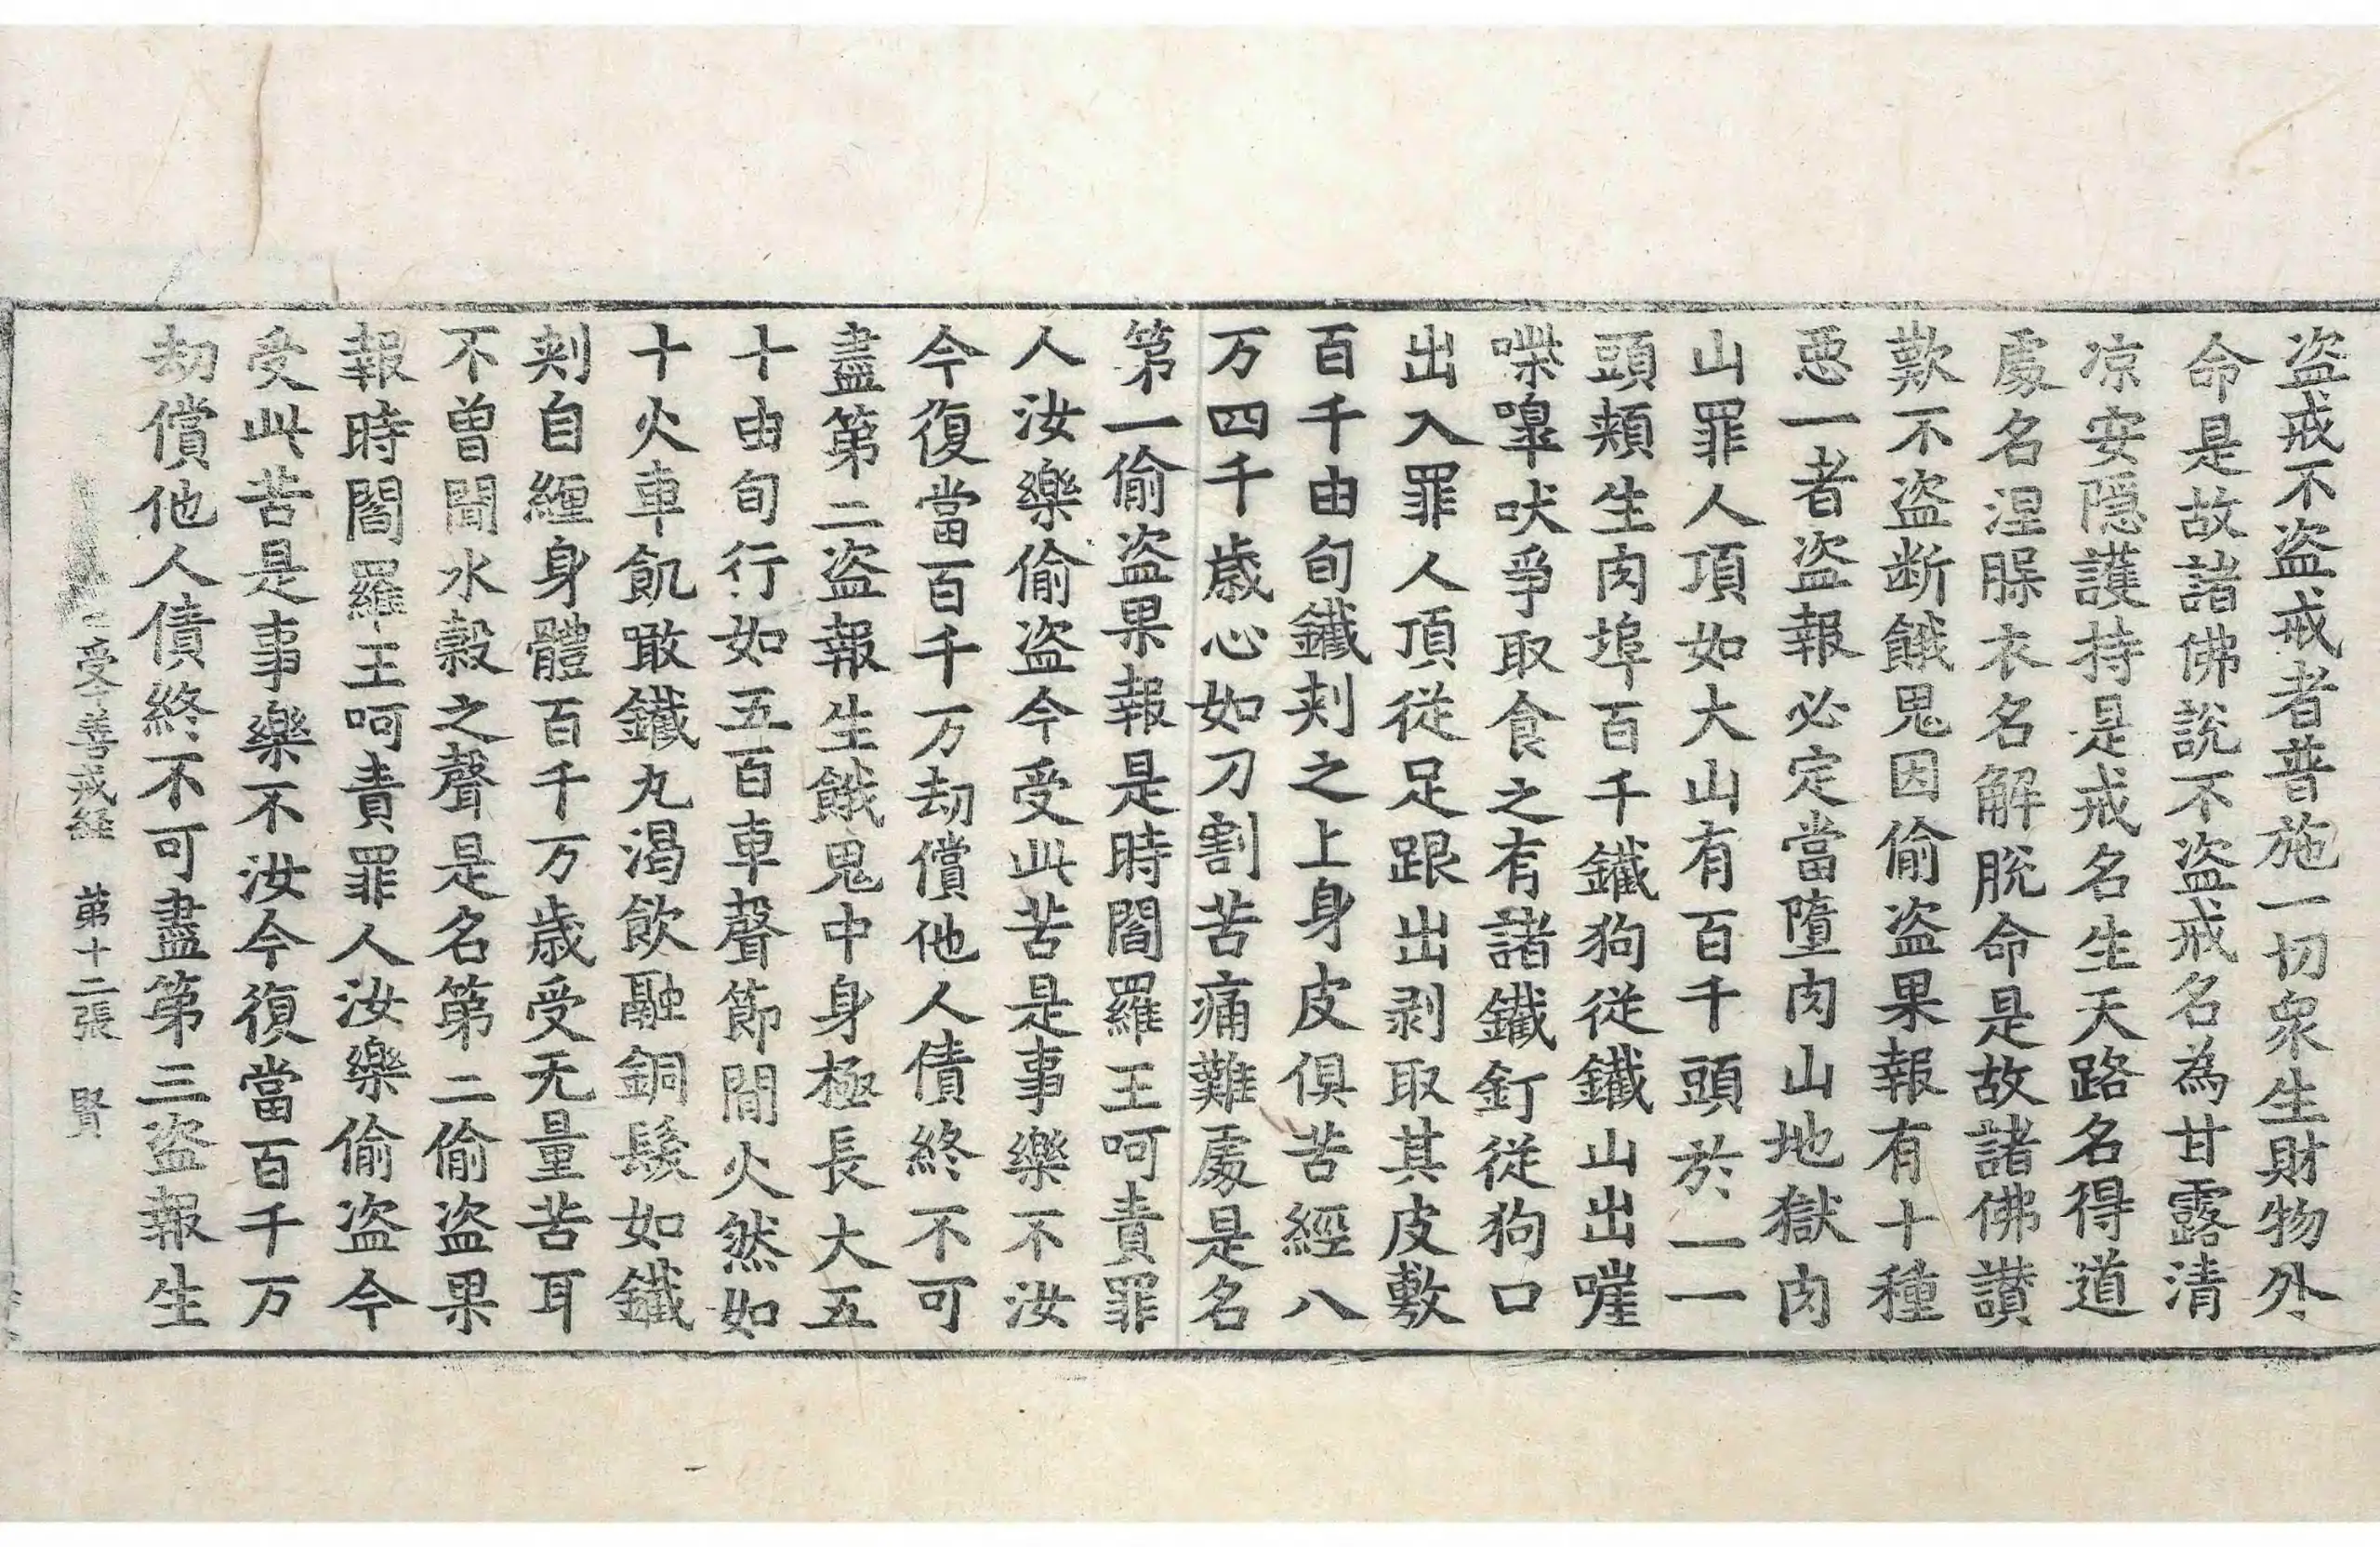 盗戒不盗戒者普施一切衆生財物外
命是故諸佛說不盗戒名為甘露清
凉安隱護持是戒名生天路名得道
處名涅脲衣名解脫命是故諸佛讃
歎不盗断餓鬼因偷盗果報有十種
惡一者盗報必定當墮肉山地獄肉
山罪人頂如大山有百千頭於一一
頭頰生肉埠百千鐵狗従鐵山出嘊
喍嘷吠爭取食之有諸鐵釘從狗口
出入罪人頂從足跟出剥取其皮敷
百千由旬鐵刾之上身皮俱苦經八
万四千歳心如刀割苦痛難處是名
第一偷盗果報是時閻羅王呵責罪
人汝樂偷盗今受此苦是事樂不汝
今復當百千万劫償他人債終不可
盡第二盗報生餓鬼中身極長大五
十由旬行如五百車聲節間火然如
十火車飢噉鐵丸渴飲融銅髮如鐵
刾自纒身體百千万歳受无量苦耳
不曾聞水糓之聲是名第二偷盗果
報時閻羅王呵責罪人汝樂偷盗今
受此苦是事樂不汝今復當百千万
劫償他人債終不可盡第三盗報生
受十善戒経 苐十二張 賢